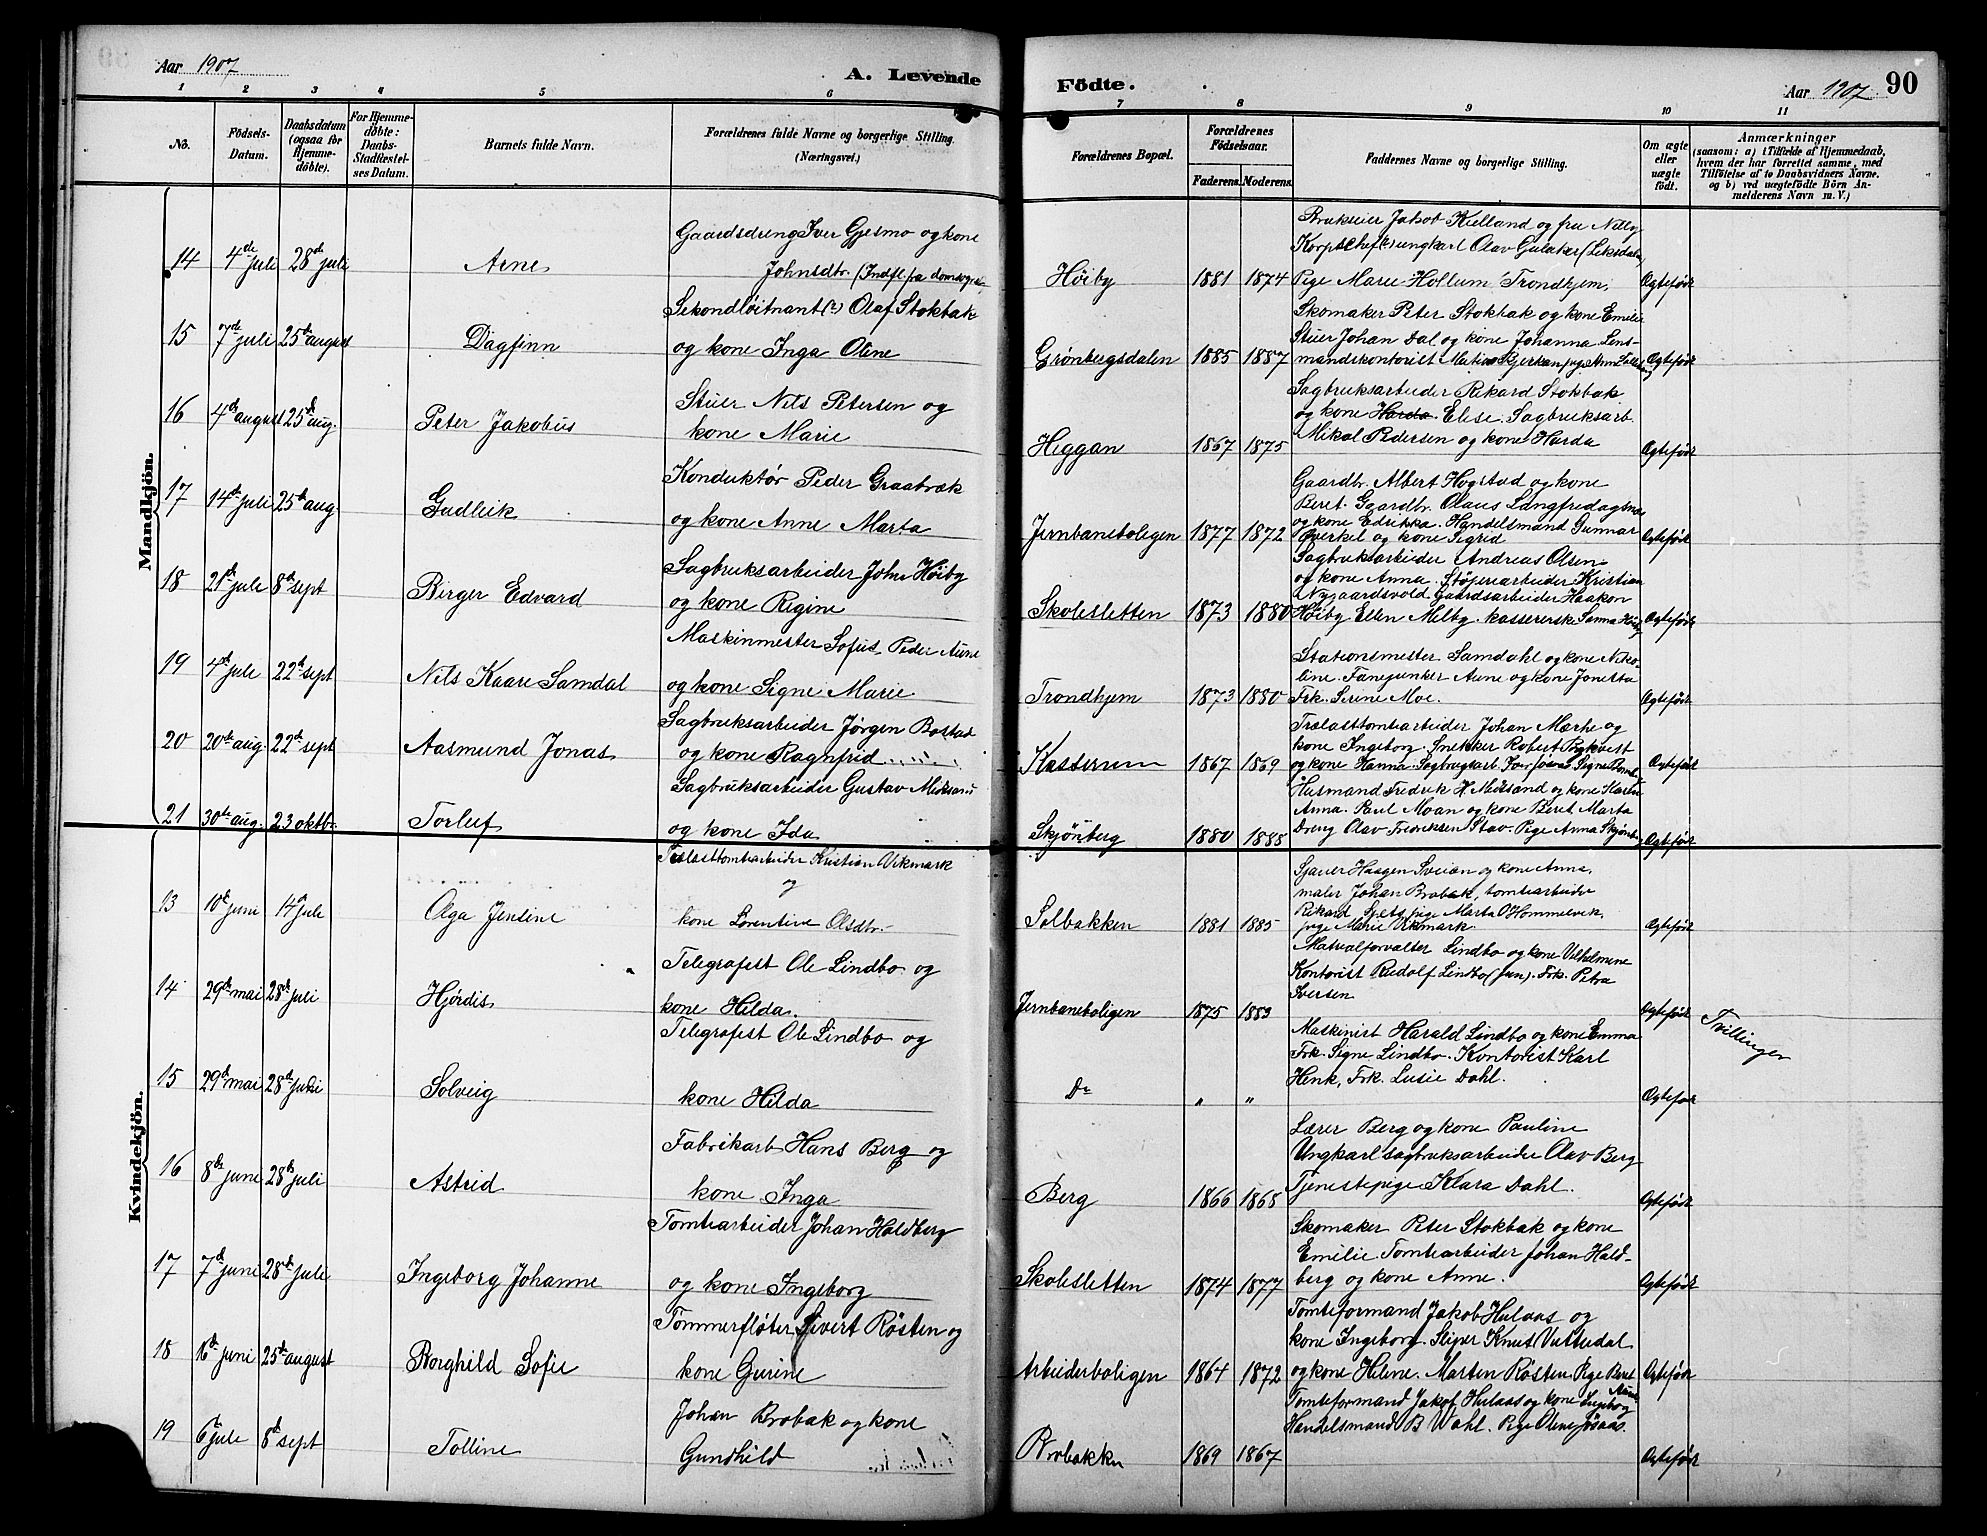 Aar 1907
A. Levende
Födte.
Aar 1907
90
1 2 3 4 5 6 7 8 9 10 11
No.
Födsels-Datum.
Daabsdatum (ogsaa for Hjemme-döbte).
For Hjemme-döbte: Daabs-Stadfæstel-ses Datum.
Barnets fulde Navn.
Forældrenes fulde Navne og borgerlige Stilling. (Næringsvei.)
Forældrenes Bopæl.
Forældrenes Födselsaar.
Faderens. Moderens.
Faddernes Navne og borgerlige Stilling.
Om ægte eller uægte födt.
Anmærkninger
(saasom: a) i Tilfælde af Hjemmedaab, hvem der har forrettet samme, med Tilföielse af to Daabsvidners Navne, og b) ved uægtefödte Börn Anmelderens Navn m. V.)
Mandkjön.
14 4de juli 28de juli Arne
Gaardsdreng Iver Gjesmo og kone
Johnsdtr. (Indfl. fra domsogne
Höiby 1881 1874
Brukseier Jakob Kielland og fru Nilly
ungkarl Olav
Pige Marie Hollum, Trondhjem,
Ægtefødt
15 7de juli 25de august Dagfinn
Sekondløitnant Olaf Stokbak
og kone Inga Oline
Grønbergsdalen 1885 1887
Skomaker Peter Stokbak og kone Emilie
Stuer Johan Dal og kone Johanna Lens-
mandskontorist
Ægtefødt
16 4de august 25de aug. Peter Jakobus
Stuer Nils Petersen og
kone Marie
Heggan 1867 1875
Sagbruksarbeider Rikard Stokbak
og kone Elise. Sagbruksarb.
Mikal Pedersen og kone Harda
Ægtefødt
17 14de juli 25de aug. Gudleik
Konduktør Peder Graabræk
og kone Anne Marta
Jernbaneboligen 1877 1872
Gaardbr. Albert Hogstad og kone
Beret. Gaardbr. Olaus
og kone. Handelsmand Gunnar
og kone Sigrid
Ægtefødt
18 21de juli 8de sept Birger Edvard
Sagbruksarbeider John Höiby
og kone Regine
Skolesletten 1873 1880
Sagbruksarbeider Andreas Olsen
og kone Anna. Kristian
Nygaardsvold. Gaardsarbeider Haakon
Höiby Ellen Melby. kassererske Sanna Höiby
Ægtefødt
19 4de juli 22de sept Nils Kaare Samdal
Maskinmester Sofus Peder Aune
og kone Signe Marie
Trondhjem 1873 1880
Stationsmester Samdahl og kone Niko-
line. Fanejunker Aune og kone Jonetta
Frk. Serine Moe.
Ægtefødt
20 20de aug. 22de sept Aasmund Jonas
Sagbruksarbeider Jørgen Bostad
og kone Ragnfrid
Kassernen 1867 1869
Trælasttomtarbeider Johan Mærhe og
kone Ingeborg. Snekker Robert
og kone Hanna
Ægtefødt
21 30de aug. 23 oktbr. Torleif
Sagbruksarbeider Gustav
og kone Ida
Skjönberg 1880 1885
Husmand Fredrik og kone
Anna. Paul Moan og kone Beret Marta
Dreng Olav Fredriksen Stav. Pige Anna
Ægtefødt
Kvindekjön.
13 10de juni 14de juli Olga Jensine
Trælasttomtarbeider Kristian Vikmark
og
kone Lorentine Olsdtr.
Solbakken 1881 1885
Sjauer Haagen Sveian og kone Anna.
maler Johan Brobak, tomtearbeider
Rikard, pige Marta Hommelvik,
pige Marie Vikmark.
Ægtefødt
14 29de mai 28de juli Hjørdis
Telegrafist Ole Lindbo og
kone Hilda.
Jernbaneboligen 1875 1883
Materialforvalter Lindbo og kone Vilhelmine
Kontorist Rudolf Lindbo (jun). Frk. Petra
Iversen
Ægtefødt
Tvillinger
15 29de mai 28de juli Solveig
Telegrafist Ole Lindbo og
kone Hilda
Do " "
Maskinist Harald Lindbo og kone Emma
Frk. Signe Lindbo. Kontorist Karl
Henk, Frk. Lusie Dahl.
Ægtefødt
16 8de juni 28de juli Astrid
Fabrikarb Hans Berg og
kone Inga
Berg 1866 1865
Lærer Berg og kone Pauline
Ungkarl sagbruksarbeider Olav Berg
Tjenestepige Klara Dahl.
Ægtefødt
17 7de juni 28de juli Ingeborg Johanne
Tomtearbeider Johan Haldberg
og kone Ingeborg
Skolesletten 1874 1877
Skomaker Peter Stokbak og kone
Emilie Tomtearbeider Johan Hald-
berg og kone Anne.
Ægtefødt
18 16de juni 25de august Borghild Sofie
Tømmerfløter Sivert Røsten og
kone Gurine
Arbeiderboligen 1864 1872
Tomteformand Jakob Hulaas og
kone Ingeborg. Sliper Knut
og kone Helene. Marten Røsten. Pige Beret
Ægtefødt
19 6te juli 8de sept Tolline
Johan Brobak og kone
Gundhild
Brobakken 1869 1867
Tomteformand Jakob Hulaas og kone Ingeborg
Handelsmand B Wahl. Pige Oline
Ægtefødt